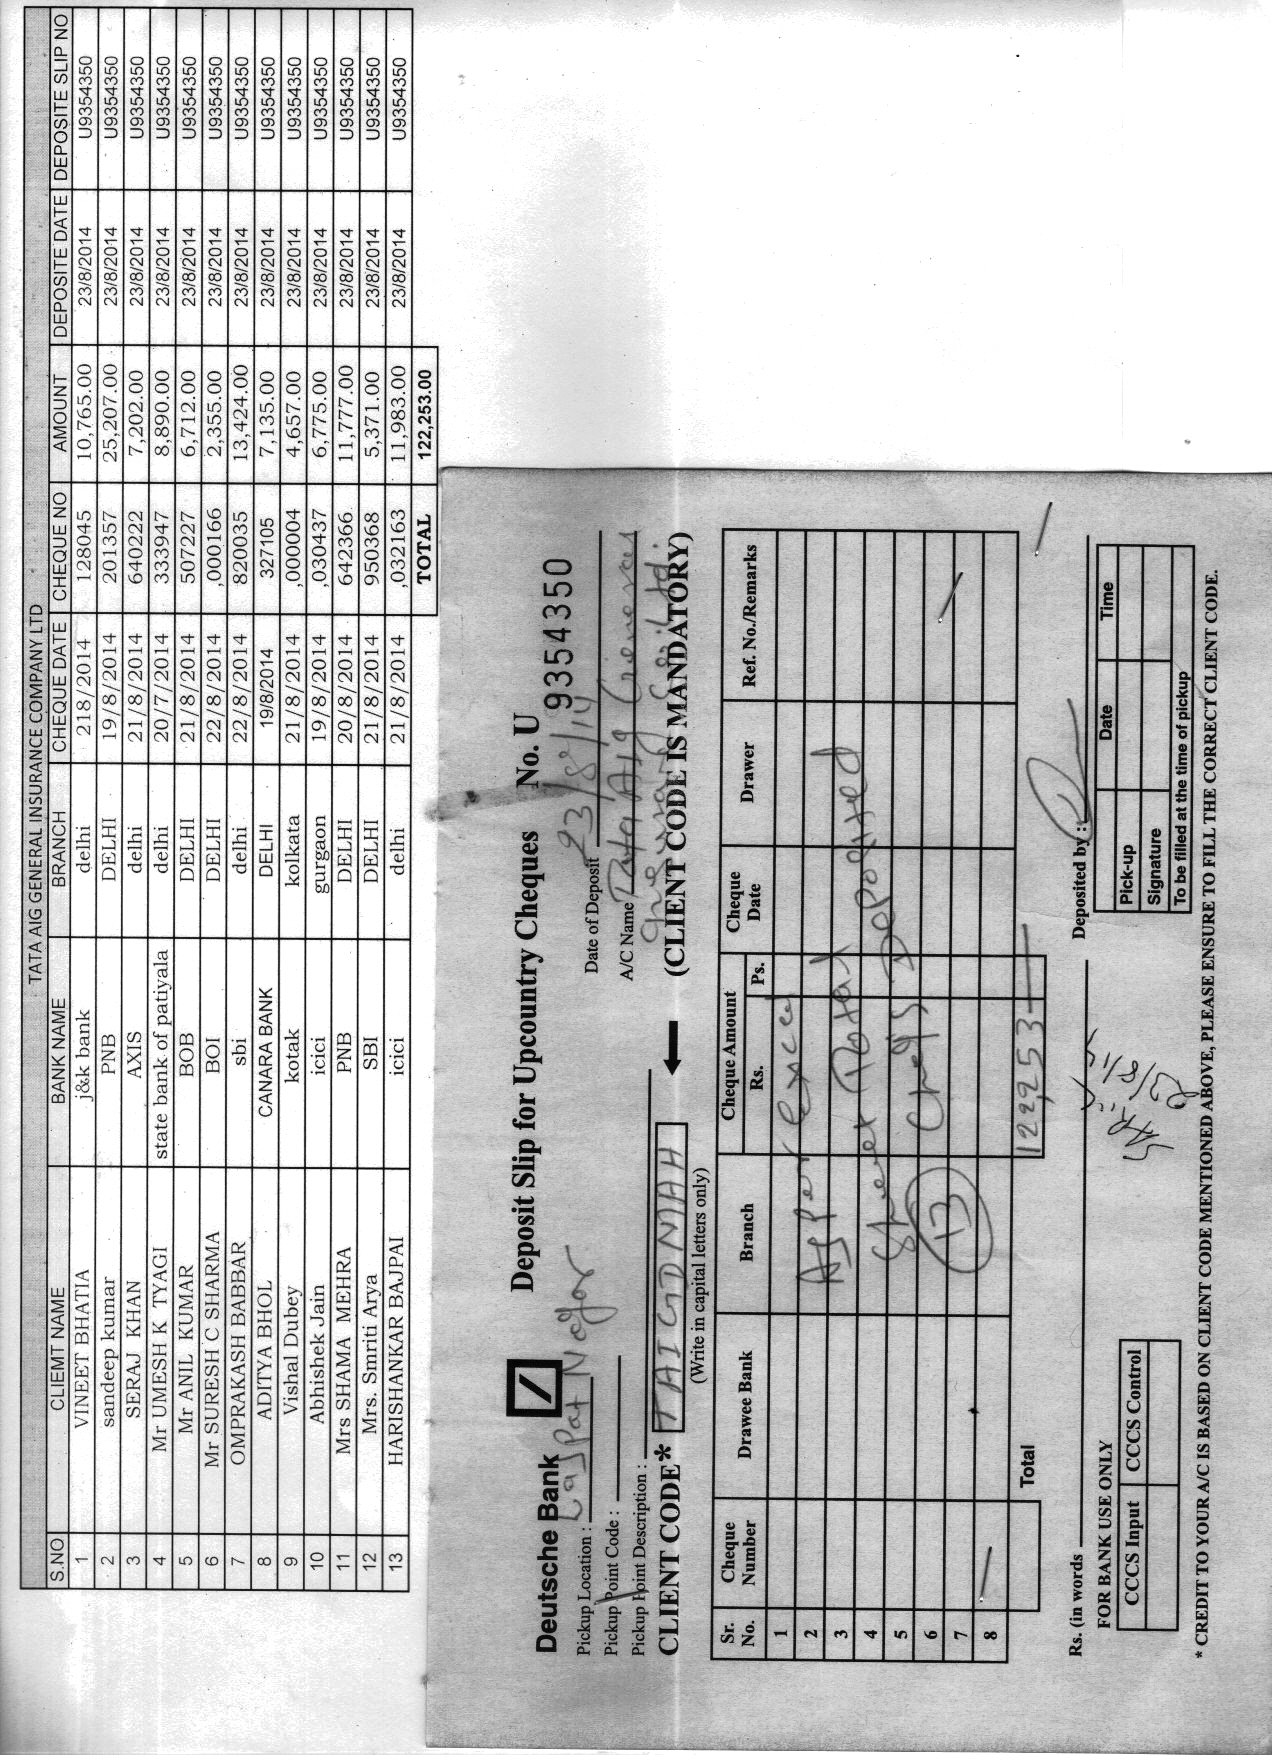 TATA AIG GENERAL INSURANCE COMPANY LTD
S.NO CLIEMT NAME BANK NAME BRANCH CHEQUE DATE CHEQUE NO AMOUNT DEPOSITE DATE DEPOSITE SLIP NO
1 VINEET BHATIA j&k bank delhi 218/2014 128045 10,765.00 23/8/2014 U9354350
2 sandeep kumar PNB DELHI 19/8/2014 201357 25,207.00 23/8/2014 U9354350
3 SERAJ KHAN AXIS delhi 21/8/2014 640222 7,202.00 23/8/2014 U9354350
4 Mr UMESH K TYAGI state bank of patiyala delhi 20/7/2014 333947 8,890.00 23/8/2014 U9354350
5 Mr ANIL KUMAR BOB DELHI 21/8/2014 507227 6,712.00 23/8/2014 U9354350
6 Mr SURESH C SHARMA BOI DELHI 22/8/2014 ,000166 2,355.00 23/8/2014 U9354350
7 OMPRAKASH BABBAR sbi delhi 22/8/2014 820035 13,424.00 23/8/2014 U9354350
8 ADITYA BHOL CANARA BANK DELHI 19/8/2014 327105 7,135.00 23/8/2014 U9354350
9 Vishal Dubey kotak kolkata 21/8/2014 ,000004 4,657.00 23/8/2014 U9354350
10 Abhishek Jain icici gurgaon 19/8/2014 ,030437 6,775.00 23/8/2014 U9354350
11 Mrs SHAMA MEHRA PNB DELHI 20/8/2014 642366 11,777.00 23/8/2014 U9354350
12 Mrs. Smriti Arya SBI DELHI 21/8/2014 950368 5,371.00 23/8/2014 U9354350
13 HARISHANKAR BAJPAI icici delhi 21/8/2014 ,032163 11,983.00 23/8/2014 U9354350
TOTAL 122,253.00
Deutsche Bank Deposit Slip for Upcountry Cheques No. U 9354350
Pickup Location : Lajpat Nagar Date of Deposit 23/8/14
Pickup Point Code : A/C Name Tata Aig General
Pickup Point Description :
CLIENT CODE* TAIGDNAH (CLIENT CODE IS MANDATORY)
(Write in capital letters only)
Sr. No. Cheque Number Drawee Bank Branch Cheque Amount Rs. Ps. Cheque Date Drawer Ref. No./Remarks
1
2 As per excel
3
4 Sheet Total
5
6 13 Chqs Deposited
7
8
Total 122253
Rs. (in words Deposited by :
FOR BANK USE ONLY
CCCS Input CCCS Control
23/8/14
Pick-up Date Time
Signature
To be filled at the time of pickup
* CREDIT TO YOUR A/C IS BASED ON CLIENT CODE MENTIONED ABOVE, PLEASE ENSURE TO FILL THE CORRECT CLIENT CODE.